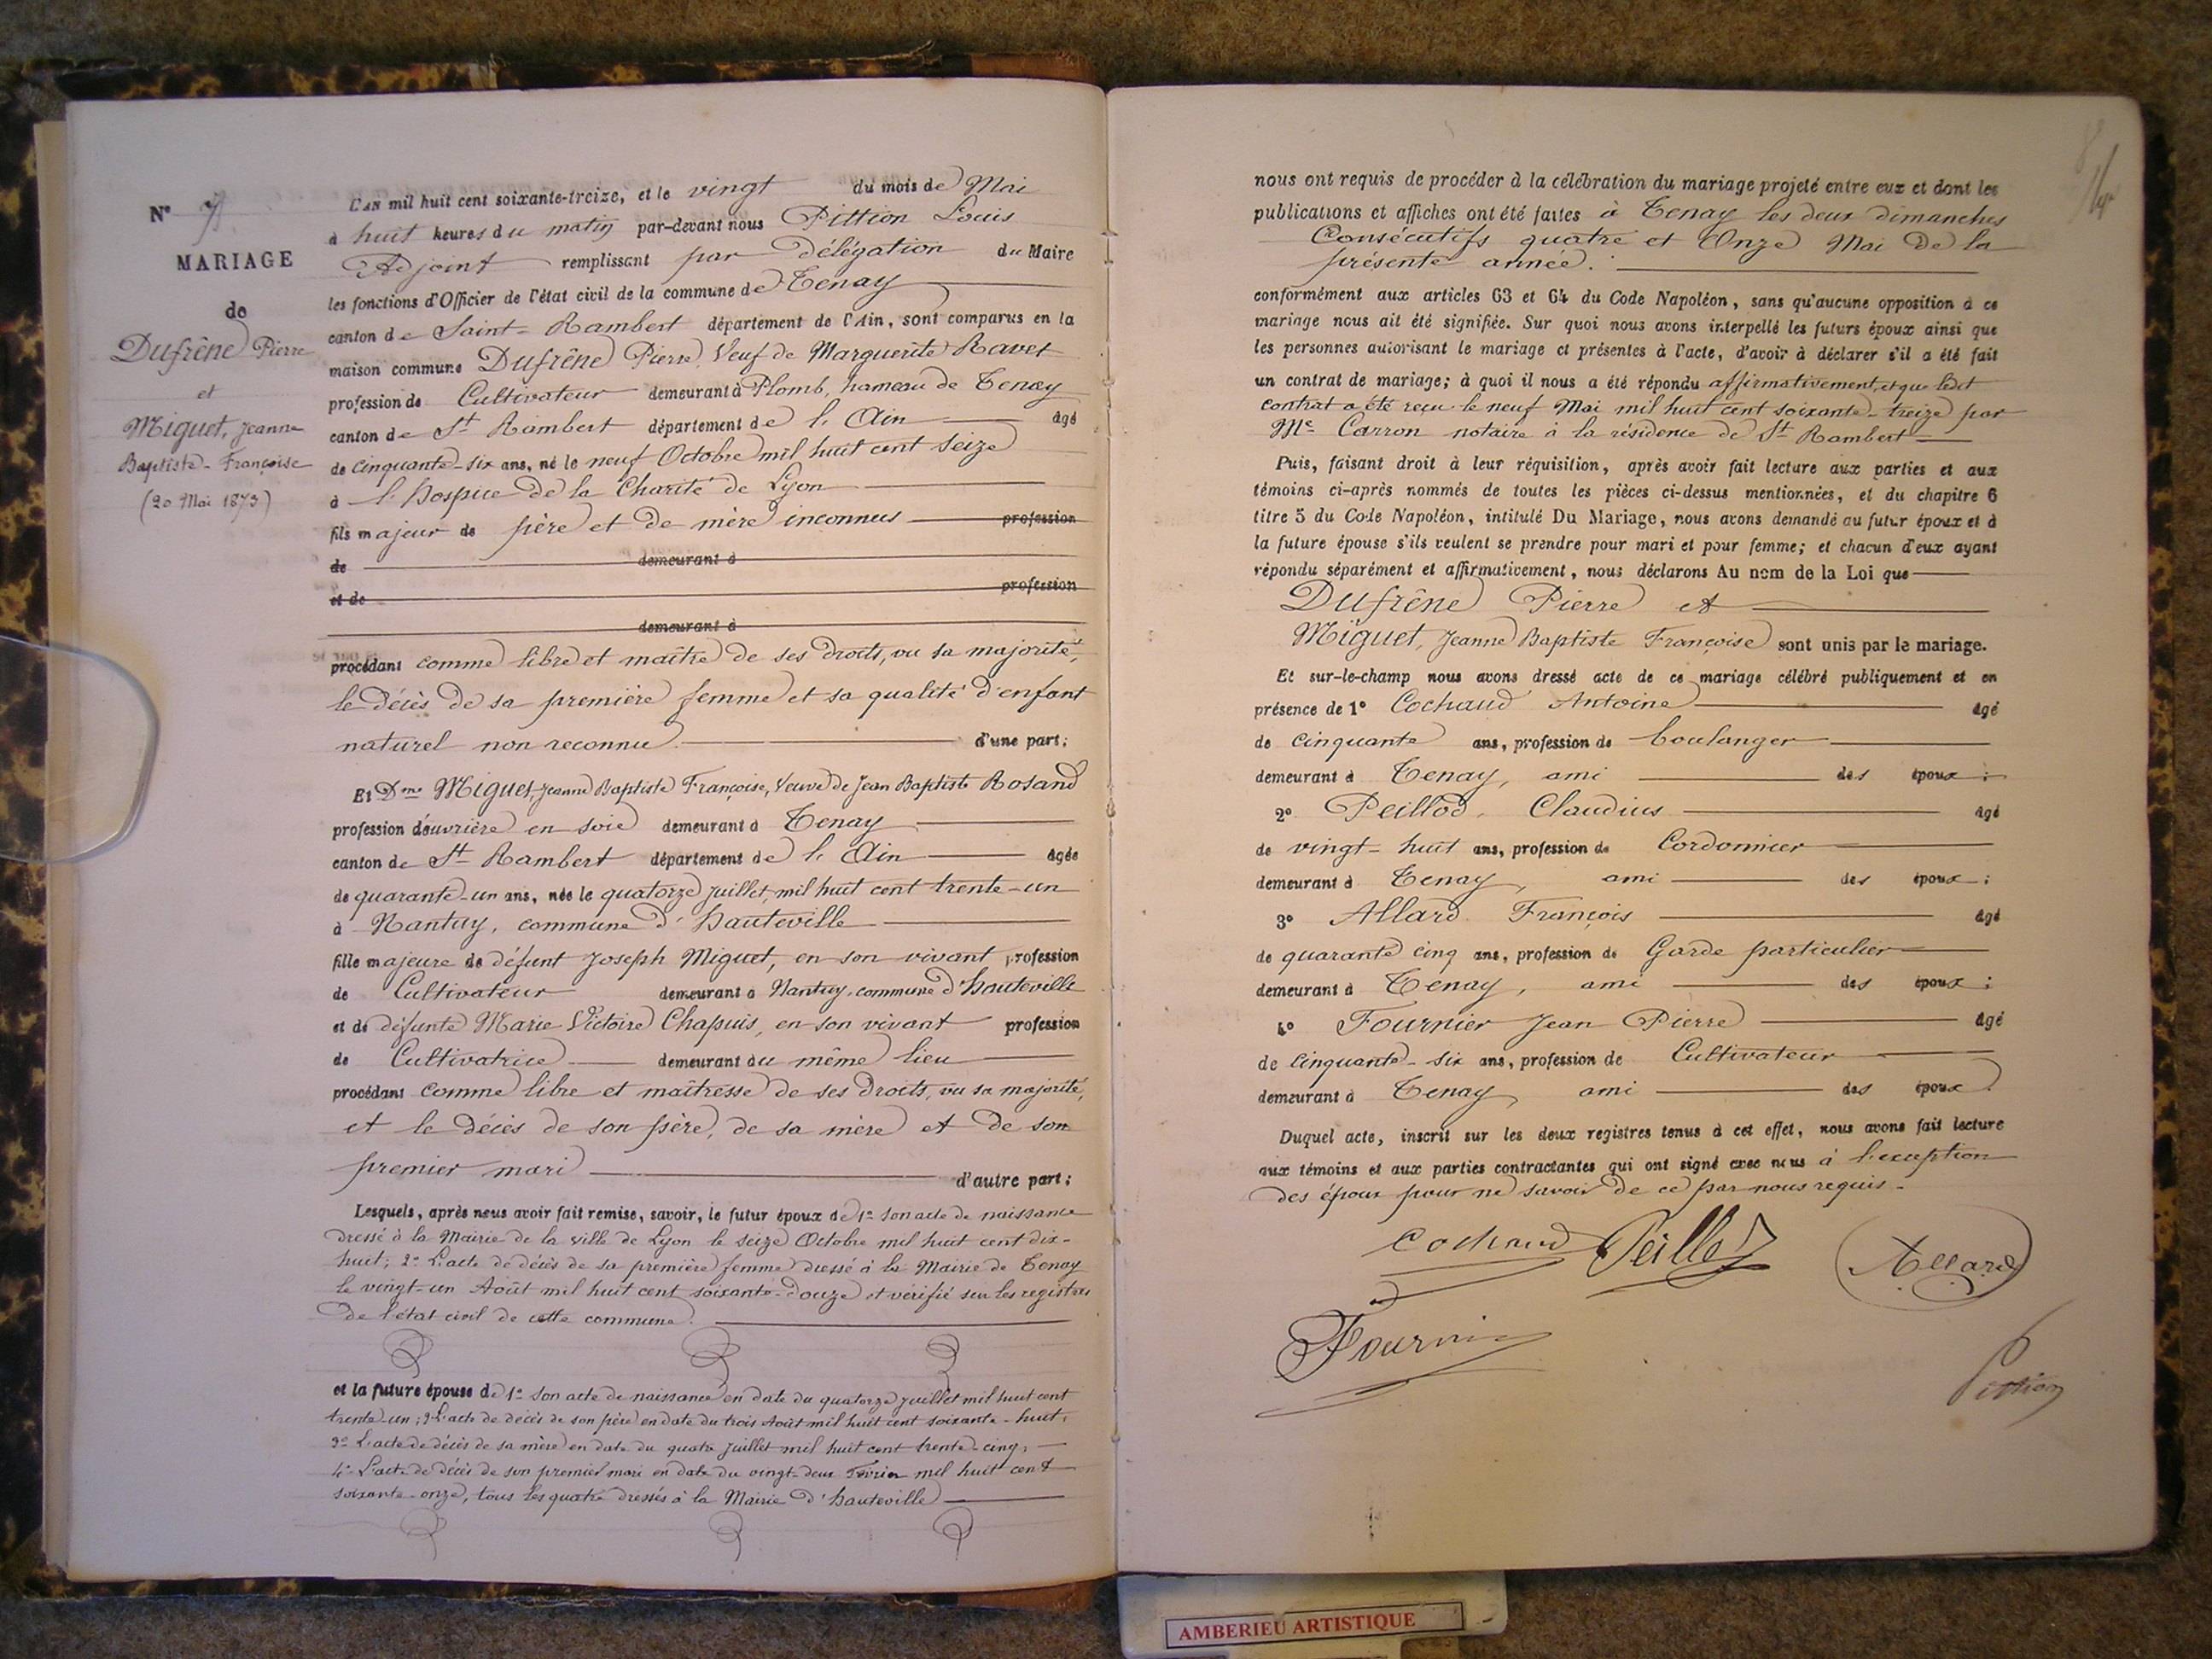 N° 7
MARIAGE
de
Dufrêne Pierre
et
Miguet, Jeanne
Baptiste-Françoise
(20 Mai 1873)
L'AN mil huit cent soixante-treize, et le vingt du mois de Mai
à huit heures du matin par-devant nous Pittion Louis
Adjoint remplissant par délégation du Maire
les fonctions d'Officier de l'état civil de la commune de Tenay
canton de Saint-Rambert département de l'Ain, sont comparus en la
maison commune Dufrêne Pierre Veuf de Marguerite Ravet
profession de Cultivateur demeurant à Plomb, hameau de Tenay
canton de St Rambert département de l'Ain âgé
de cinquante-six ans, né le neuf Octobre mil huit cent seize
à l'hospice de la Charité de Lyon
fils majeur de père et de mère inconnus profession
de demeurant à
et de profession
demeurant à
procédant comme libre et maître de ses droits, vu sa majorité,
le décès de sa première femme et sa qualité d'enfant
naturel non reconnu d'une part;
Et Dme Miguet, Jeanne Baptiste Françoise, Veuve de Jean Baptiste Rosand
profession d'ouvrière en soie demeurant à Tenay
canton de St Rambert département de l'Ain âgée
de quarante-un ans, née le quatorze Juillet, mil huit cent trente-un
à Nantuy, commune d'hauteville
fille majeure de défunt Joseph Miguet, en son vivant profession
de Cultivateur demeurant à Nantuy, commune d'hauteville
et de défunte Marie Victoire Chapuis, en son vivant profession
de Cultivatrice demeurant au même lieu
procédant comme libre et maîtresse de ses droits, vu sa majorité,
et le décès de son père, de sa mère et de son
premier mari d'autre part;
Lesquels, après nous avoir fait remise, savoir, le futur époux de 1° son acte de naissance
dressé à la Mairie de la ville de Lyon le seize Octobre mil huit cent dix-
huit; 2° L'acte de décès de sa première femme dressé à la Mairie de Tenay
le vingt-un Août mil huit cent soixante-douze et vérifié sur les registres
de l'état civil de cette commune.
et la future épouse de 1° son acte de naissance en date du quatorze Juillet mil huit cent
trente-un; 2° L'acte de décès de son père en date du trois Août mil huit cent soixante-huit,
3° L'acte de décès de sa mère en date du quatre Juillet mil huit cent trente-cinq,
4° L'acte de décès de son premier mari en date du vingt-deux Février mil huit cent
soixante-onze, tous les quatre dressés à la Mairie d'hauteville
nous ont requis de procéder à la célébration du mariage projeté entre eux et dont les
publications et affiches ont été faites à Tenay les deux dimanches
Consécutifs quatre et Onze Mai de la
présente année.
conformément aux articles 63 et 64 du Code Napoléon, sans qu'aucune opposition à ce
mariage nous ait été signifiée. Sur quoi nous avons interpellé les futurs époux ainsi que
les personnes autorisant le mariage et présentes à l'acte, d'avoir à déclarer s'il a été fait
un contrat de mariage; à quoi il nous a été répondu affirmativement, et que ledit
contrat a été reçu le neuf Mai mil huit cent soixante-treize par
Me Carron notaire à la résidence de St Rambert
Puis, faisant droit à leur réquisition, après avoir fait lecture aux parties et aux
témoins ci-après nommés de toutes les pièces ci-dessus mentionnées, et du chapitre 6
titre 5 du Code Napoléon, intitulé Du Mariage, nous avons demandé au futur époux et à
la future épouse s'ils veulent se prendre pour mari et pour femme; et chacun d'eux ayant
répondu séparément et affirmativement, nous déclarons Au nom de la Loi que
Dufrêne Pierre et
Miguet, Jeanne Baptiste Françoise sont unis par le mariage.
Et sur-le-champ nous avons dressé acte de ce mariage célébré publiquement et en
présence de 1° Cochaud Antoine âgé
de cinquante ans, profession de boulanger
demeurant à Tenay, ami des époux;
2° Peillod, Claudius âgé
de vingt-huit ans, profession de Cordonnier
demeurant à Tenay, ami des époux;
3° Allard François âgé
de quarante cinq ans, profession de Garde particulier
demeurant à Tenay, ami des époux;
4° Fournier Jean Pierre âgé
de cinquante-six ans, profession de Cultivateur
demeurant à Tenay, ami des époux
Duquel acte, inscrit sur les deux registres tenus à cet effet, nous avons fait lecture
aux témoins et aux parties contractantes qui ont signé avec nous à l'exception
des époux pour ne savoir de ce par nous requis.
Cochaud Peillod Allard
Fournier
Pittion
AMBERIEU ARTISTIQUE